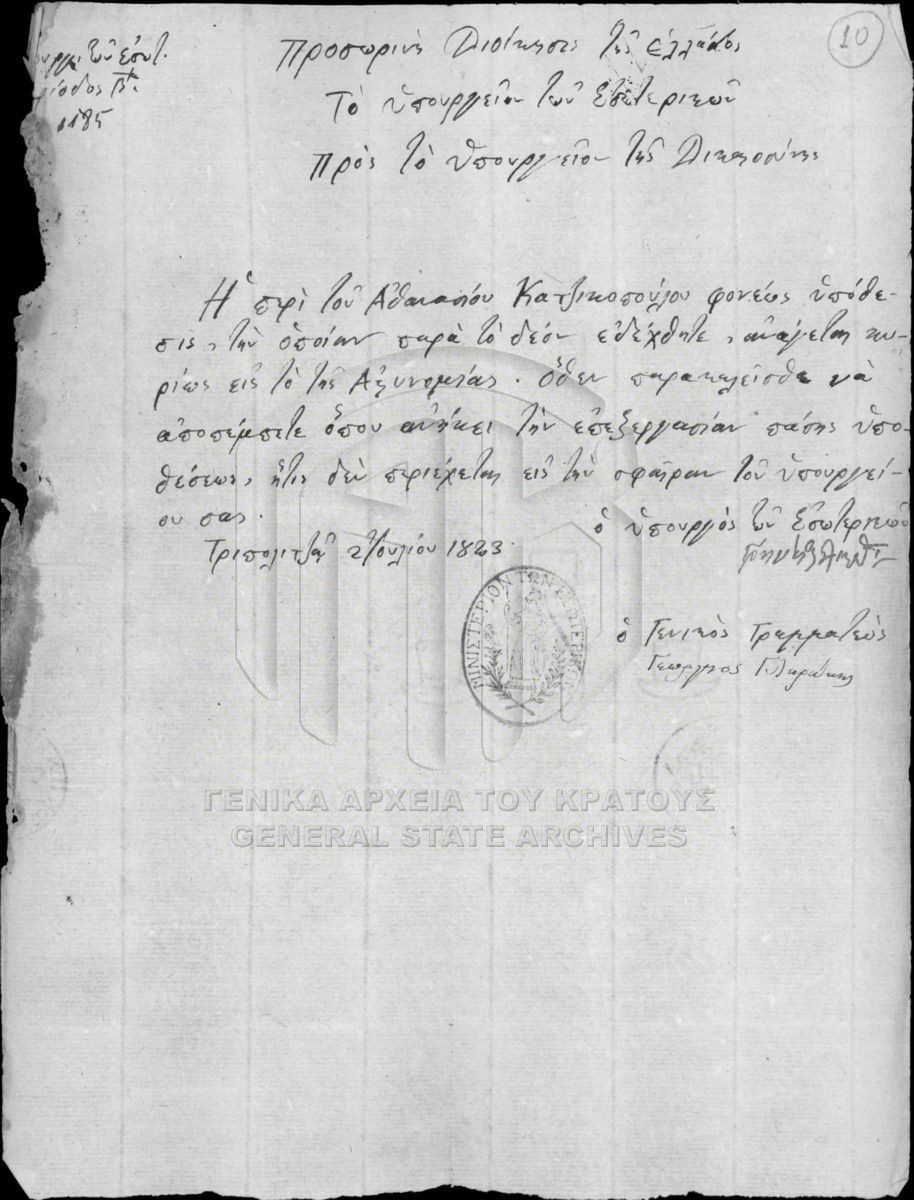 10
Προσωρινὴ Διοίκησις τῆς Ἑλλάδος
Τὸ Ὑπουργεῖον τῶν Ἐσωτερικῶν
Πρὸς τὸ Ὑπουργεῖον τῆς Δικαιοσύνης
τῶν ἐσωτ.
Β.
185
Ἡ περὶ τοῦ Ἀθανασίου Κατζικοπούλου φονέως ὑπόθε-
σις, τὴν ὁποίαν παρὰ τὸ δέον εδέχθητε, ἀνάγεται κυ-
ρίως εἰς τὸ τῆς Ἀστυνομίας. Ὅθεν παρακαλεῖσθε νὰ
ἀποπέμπετε ὅπου ἀνήκει τὴν ἐπεξεργασίαν πάσης ὑπο-
θέσεως, ἥτις δὲν περιέχεται εἰς τὴν σφαῖραν τοῦ ὑπουργεί-
ου σας.
Τριπολιτζᾷ 2 Ἰουλίου 1823
ὁ ὑπουργὸς τῶν ἐσωτερικῶν
ὁ Γενικὸς Γραμματεὺς
Γεώργιος Γλαράκης
ΜΙΝΙΣΤΕΡΙΟΝ ΤΩΝ ΕΣΩΤΕΡΙΚΩΝ
ΓΕΝΙΚΑ ΑΡΧΕΙΑ ΤΟΥ ΚΡΑΤΟΥΣ
GENERAL STATE ARCHIVES